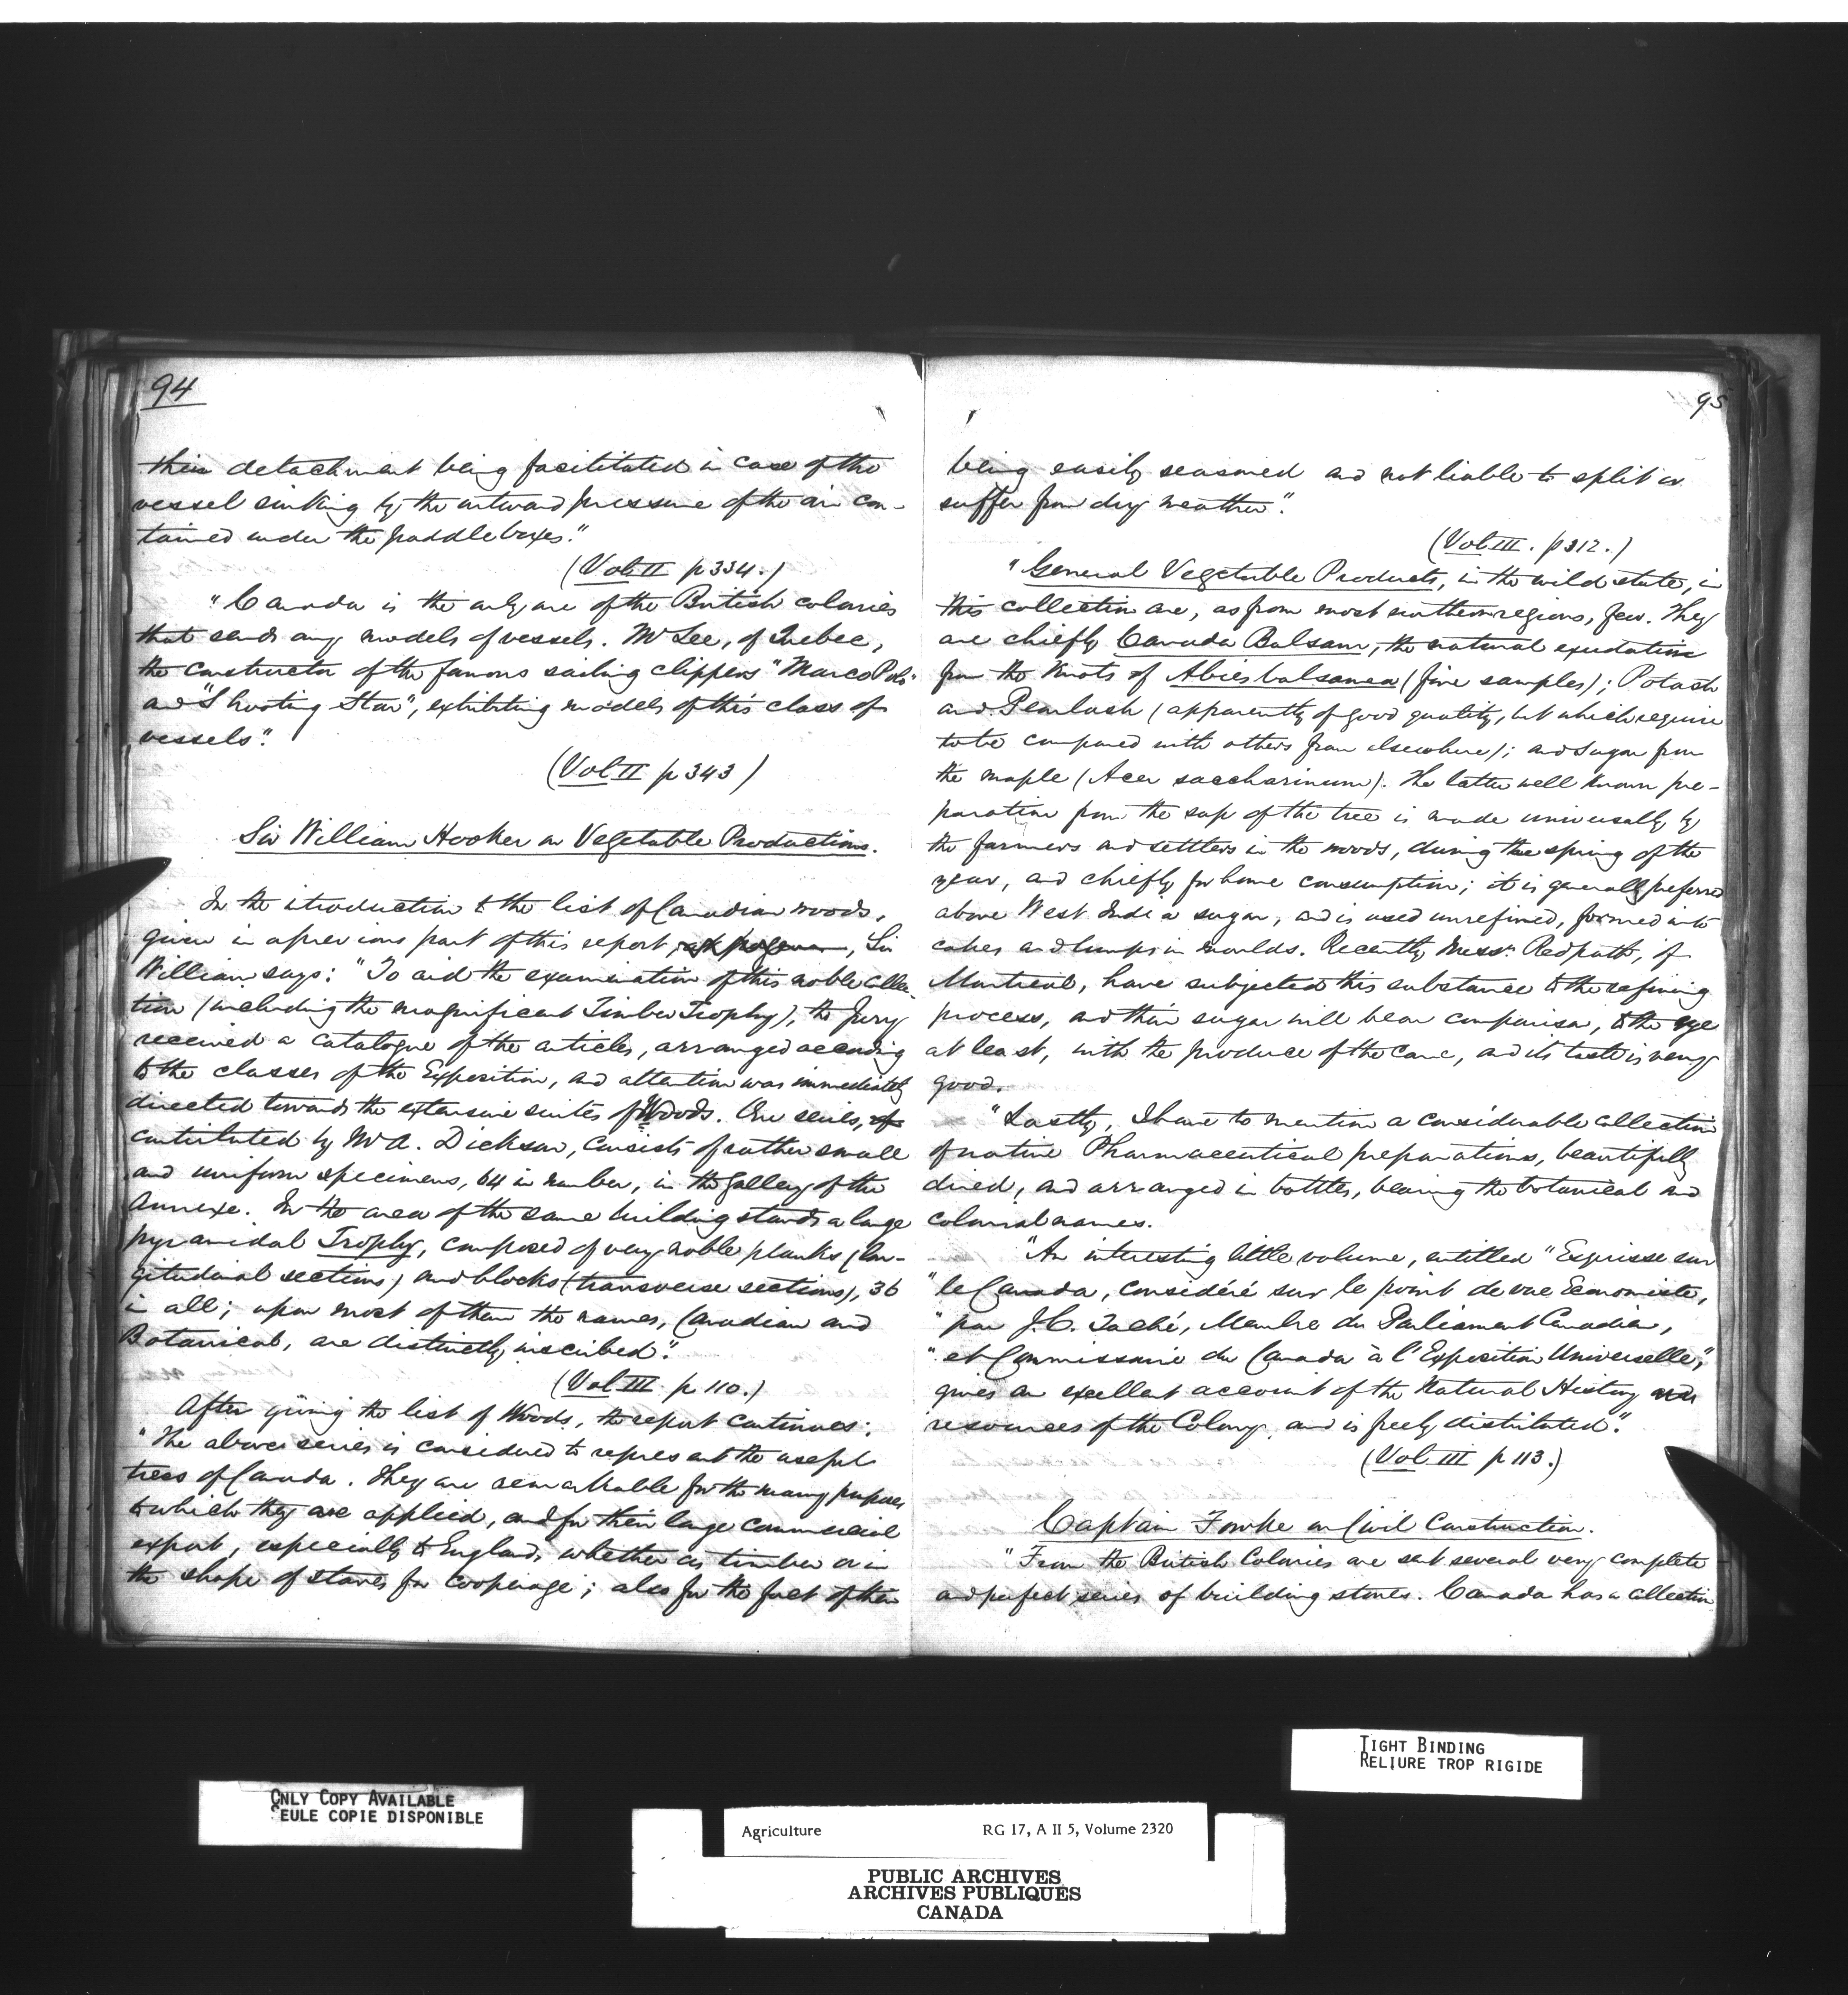 94
their detachment being facilitated in case of the
vessel sinking by the outward pressure of the air con-
tained under the paddle boxes."
(Vol II p 334.)
"Canada is the only one of the British colonies
that sends any models of vessels. Mr Lee, of Quebec,
the constructor of the famous sailing clippers "Marco Polo"
and "Shooting Star", exhibiting models of this class of
vessels".
(Vol II p 343)
Sir William Hooker on Vegetable Productions.
In the itroduction to the list of Canadian woods,
given in a previous part of this report, , Sir
William says: "To aid the examination of this noble collec-
tion (including the magnificent Timber Trophy), the Jury
received a catalogue of the articles, arranged according
to the classes of the Exposition, and attention was immediately
directed towards the extensive suites of Woods. One series,
contributed by Mr A. Dickson, consists of rather small
and uniform specimens, 64 in number, in the gallery of the
Annexe. In the area of the same building stands a large
pyramidal Trophy, composed of very noble planks (lon-
gitudinal sections) and blocks (transverse sections), 36
in all; upon most of them the names, Canadian and
Botanical, are distinctly inscribed".
(Vol III p 110.)
After giving the list of Woods, the report continues:
"The above series is considered to represent the useful
trees of Canada. They are remarkable for the many purposes
to which they are applied, and for their large commercial
export, especially to England, whether as timber or in
the shape of staves for cooperage; also for the fact of their
95
being easily seasoned and not liable to split or
suffer from dry weather".
(Vol III. p 312.)
"General Vegetable Products, in the wild state, in
this collection are, as from most northern regions, few. They
are chiefly Canada Balsam, the natural exudation
from the knots of Abies balsamea (fine samples); Potash
and Pearlash (apparently of good quality, but which require
to be compared with others from elsewhere); and sugar from
the maple (Acer saccharinum). The latter well known pre-
paration from the sap of the tree is made universally by
the farmers and settlers in the woods, during the spring of the
year, and chiefly for home consumption; it is generally preferred
above West India sugar, and is used unrefined, formed into
cakes and lumps in moulds. Recently Messrs Redpath, of
Montreal, have subjected this substance to the refining
process, and their sugar will bear comparison, to the eye
at least, with the produce of the cane, and its taste is very
good.
"Lastly, I have to mention a considerable collection
of native Pharmaceutical preparations, beautifully
dried, and arranged in bottles, bearing the botanical and
colonial names.
"An interesting little volume, entitled "Esquisse sur
"le Canada, considéré sur le point de vue Economiste,
"par J.C. Taché, Membre du Parliament Canadien,
"et Commissaire du Canada à l'Exposition Universelle,"
gives an excellent account of the Natural History and
resources of the Colony, and is freely distributed".
(Vol III p 113.)
Captain Fowke on Civil Construction.
"From the British Colonies are sent several very complete
and perfect series of building stones. Canada has a collection
TIGHT BINDING
RELIURE TROP RIGIDE
ONLY COPY AVAILABLE
SEULE COPIE DISPONIBLE
Agriculture RG 17, A II 5, Volume 2320
PUBLIC ARCHIVES
ARCHIVES PUBLIQUES
CANADA